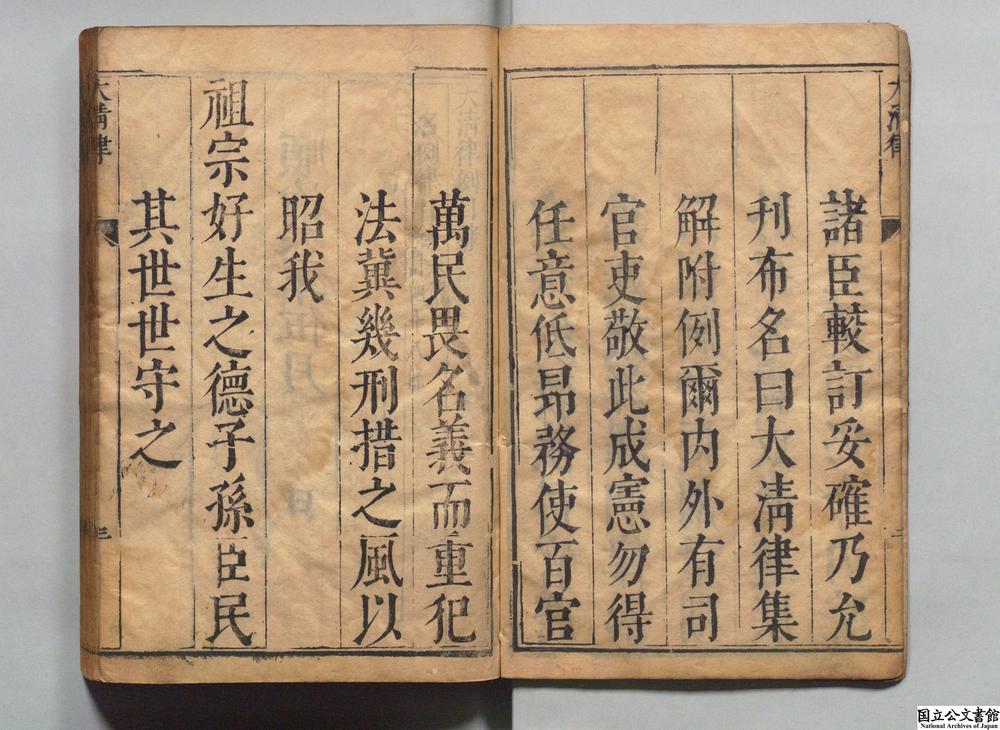 大清律
諸臣較訂妥確乃允
刊布名曰大淸律集
解附例爾內外有司
官吏敬此成憲勿得
任意低昻務使百官
萬民畏名義而重犯
法冀幾刑措之風以
昭我
祖宗好生之德子孫臣民
其世世守之
大清律
三
国立公文書館
National Archives of Japan